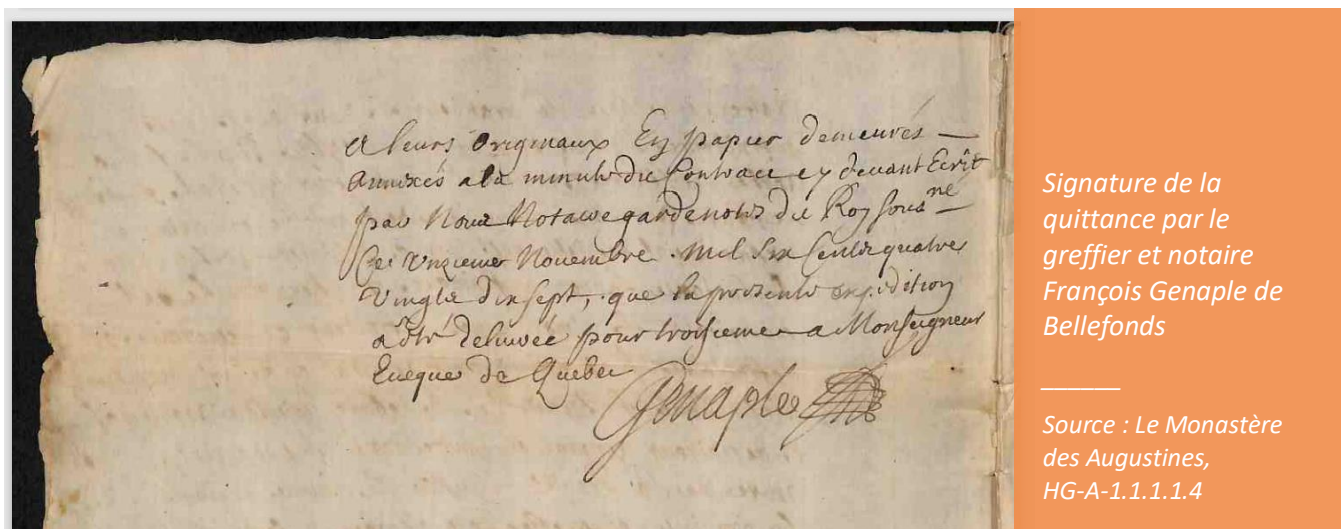 a leurs originaux En papier demeurés —
annexés a la minute du Contract cy devant Ecrit
par Nous Notaire gardenotes du Roy sous.né
Ce Unzieme Novembre. mil six cents quatre
vingts dix sept, que la presente expedition
a été delivrée pour troisieme a Monseigneur
Eveque de Quebec
Genaple
Signature de la
quittance par le
greffier et notaire
François Genaple de
Bellefonds
Source : Le Monastère
des Augustines,
HG-A-1.1.1.1.4